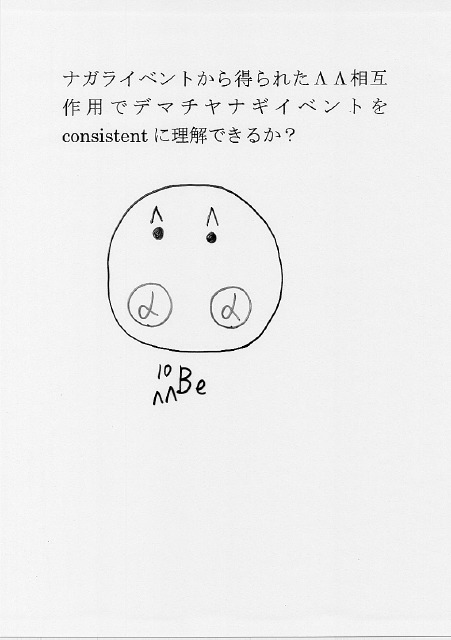 ナガライベントから得られたΛΛ相互
作用でデマチヤナギイベントを
consistent に理解できるか？
Λ Λ
α α
10
ΛΛBe